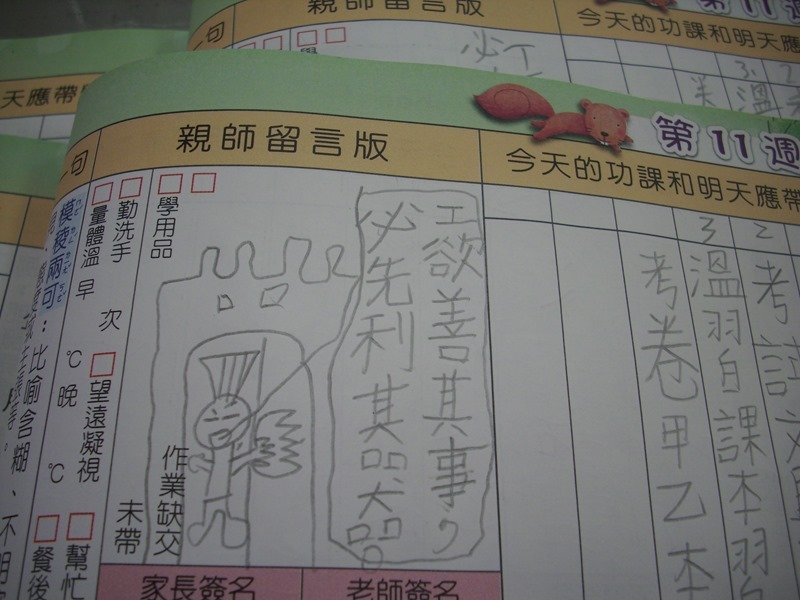 第11週
親師留言版
今天的功課和明天應
必
溫
天應帶
第11週
一句
親師留言版
今天的功課和明天應帶
2
考試
3
溫習課本習
考卷甲乙本
工欲善其事,
必先利其器
學用品
作業缺交
未帶
勤洗手 次
望遠凝視
幫忙
量體溫 早 ℃晚 ℃
餐後
模稜兩可:比喻含糊、不明
家長簽名
老師簽名